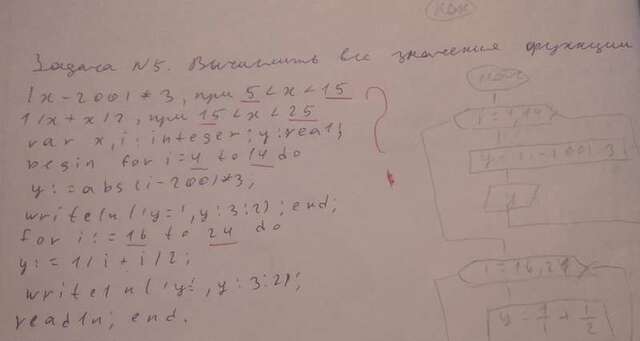 кон
Задача №5. Вычислить все значения функции
|x-200|*3, при 5<x<15
1/x+x/2, при 15<x<25
var x,i:integer;y:real;
begin for i=4 to 14 do
y:=abs(i-200)*3;
writeln('y=',y:3:2);end;
for i:=16 to 24 do
y:=1/i+i/2;
writeln('y=',y:3:2);
readln; end.
нач
y
i=16,24